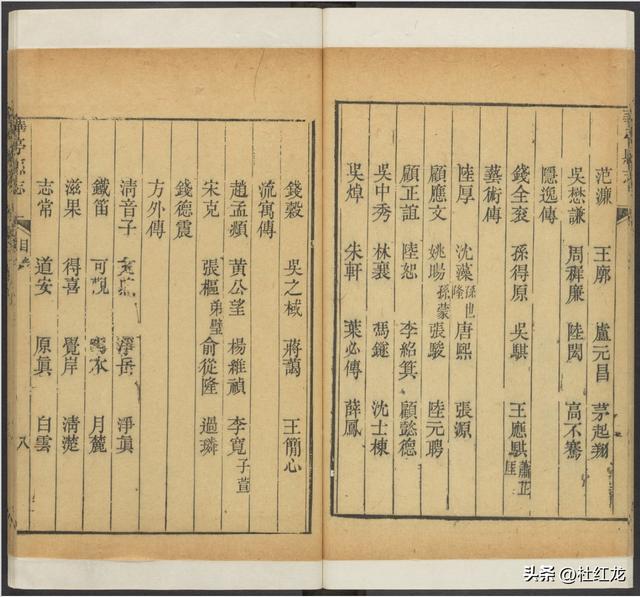 范濂 王廓 盧元昌 茅起翔
吳懋謙 周群廉 陸閎 高不騫
隱逸傳
錢全袞 孫得原 吳騏 王應騏 蕭芷厓
藝術傳
陸厚 沈藻 孫世隆 唐熙 張源
顧應文 姚暘 孫蒙 張駿 陸元聘
顧正誼 陸恕 李紹箕 顧懿德
吳中秀 林襄 馮鎚 沈士棟
吳焯 朱軒 葉必傳 薛鳳
錢穀 吳之棫 蔣藹 王簡心
流寓傳
趙孟頫 黃公望 楊維禎 李寬 子萱
宋克 張樞 弟璧 俞從隆 過璘
錢德震
方外傳
清音子 淨岳 淨眞
鐵笛 可觀 月麓
滋果 得喜 覺岸 清濋
志常 道安 原眞 白雲
華亭縣志
目
八
头条 @杜红龙